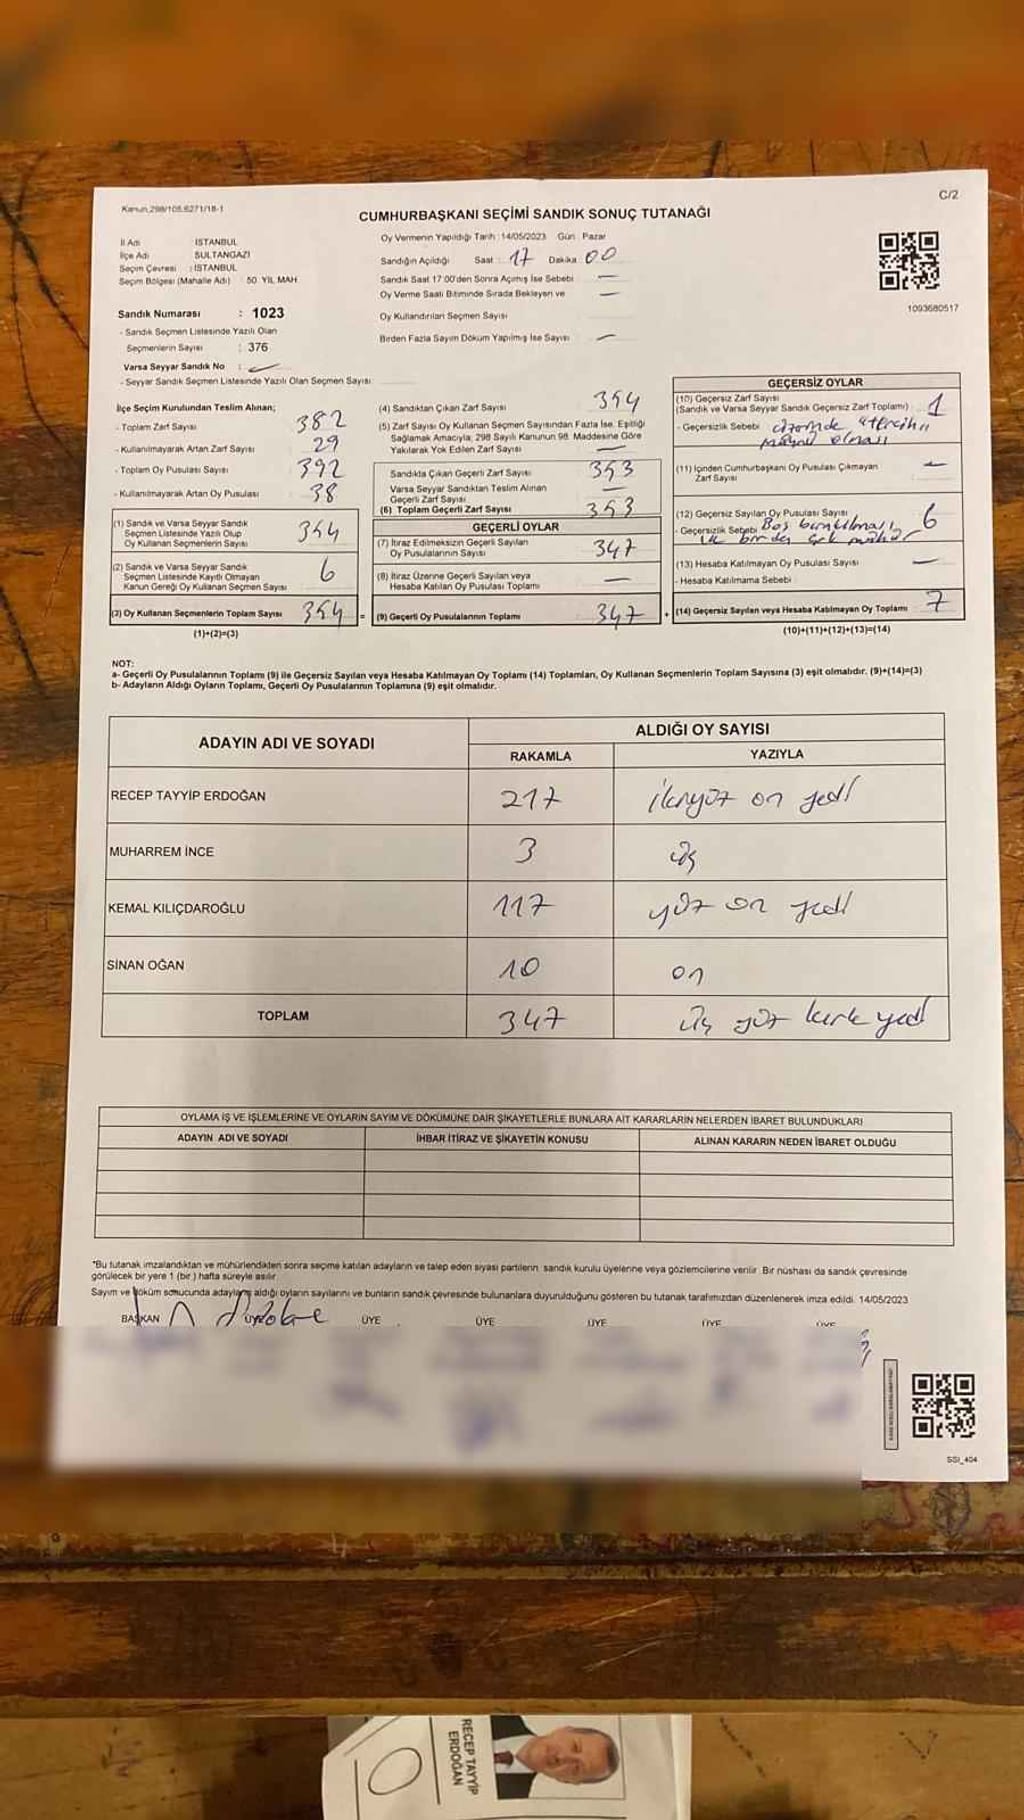 C/2
Kanun,298/105,6271/18-1
CUMHURBAŞKANI SEÇİMİ SANDIK SONUÇ TUTANAĞI
İl Adı İSTANBUL
İlçe Adı SULTANGAZİ
Seçim Çevresi : İSTANBUL
Seçim Bölgesi (Mahalle Adı) : 50. YIL MAH
Sandık Numarası : 1023
- Sandık Seçmen Listesinde Yazılı Olan
Seçmenlerin Sayısı : 376
Varsa Seyyar Sandık No :
- Seyyar Sandık Seçmen Listesinde Yazılı Olan Seçmen Sayısı:
Oy Vermenin Yapıldığı Tarih : 14/05/2023 Gün : Pazar
Sandığın Açıldığı Saat : 17 Dakika 00
Sandık Saat 17:00'den Sonra Açılmış İse Sebebi —
Oy Verme Saati Bitiminde Sırada Bekleyen ve —
Oy Kullandırılan Seçmen Sayısı
Birden Fazla Sayım Döküm Yapılmış İse Sayısı —
1093680517
İlçe Seçim Kurulundan Teslim Alınan;
- Toplam Zarf Sayısı 382
- Kullanılmayarak Artan Zarf Sayısı 29
- Toplam Oy Pusulası Sayısı 392
- Kullanılmayarak Artan Oy Pusulası 38
(1) Sandık ve Varsa Seyyar Sandık
Seçmen Listesinde Yazılı Olup
Oy Kullanan Seçmenlerin Sayısı 354
(2) Sandık ve Varsa Seyyar Sandık
Seçmen Listesinde Kayıtlı Olmayan
Kanun Gereği Oy Kullanan Seçmen Sayısı 6
(3) Oy Kullanan Seçmenlerin Toplam Sayısı 354 =
(1)+(2)=(3)
(4) Sandıktan Çıkan Zarf Sayısı 354
(5) Zarf Sayısı Oy Kullanan Seçmen Sayısından Fazla İse, Eşitliği
Sağlamak Amacıyla; 298 Sayılı Kanunun 98. Maddesine Göre
Yakılarak Yok Edilen Zarf Sayısı —
Sandıkta Çıkan Geçerli Zarf Sayısı 353
Varsa Seyyar Sandıktan Teslim Alınan
Geçerli Zarf Sayısı —
(6) Toplam Geçerli Zarf Sayısı 353
GEÇERLİ OYLAR
(7) İtiraz Edilmeksizin Geçerli Sayılan
Oy Pusulalarının Sayısı 347
(8) İtiraz Üzerine Geçerli Sayılan veya
Hesaba Katılan Oy Pusulası Toplamı —
(9) Geçerli Oy Pusulalarının Toplamı 347 +
GEÇERSİZ OYLAR
(10) Geçersiz Zarf Sayısı
(Sandık ve Varsa Seyyar Sandık Geçersiz Zarf Toplamı) 1
- Geçersizlik Sebebi üzerinde "tercih"
mührü olması
(11) İçinden Cumhurbaşkanı Oy Pusulası Çıkmayan
Zarf Sayısı —
(12) Geçersiz Sayılan Oy Pusulası Sayısı 6
- Geçersizlik Sebebi Boş bırakılması,
(13) Hesaba Katılmayan Oy Pusulası Sayısı —
- Hesaba Katılmama Sebebi
(14) Geçersiz Sayılan veya Hesaba Katılmayan Oy Toplamı 7
(10)+(11)+(12)+(13)=(14)
NOT:
a- Geçerli Oy Pusulalarının Toplamı (9) ile Geçersiz Sayılan veya Hesaba Katılmayan Oy Toplamı (14) Toplamları, Oy Kullanan Seçmenlerin Toplam Sayısına (3) eşit olmalıdır. (9)+(14)=(3)
b- Adayların Aldığı Oyların Toplamı, Geçerli Oy Pusulalarının Toplamına (9) eşit olmalıdır.
ADAYIN ADI VE SOYADI ALDIĞI OY SAYISI
RAKAMLA YAZIYLA
RECEP TAYYİP ERDOĞAN 217 ikiyüz on yedi
MUHARREM İNCE 3 üç
KEMAL KILIÇDAROĞLU 117 yüz on yedi
SİNAN OĞAN 10 on
TOPLAM 347 üç yüz kırk yedi
OYLAMA İŞ VE İŞLEMLERİNE VE OYLARIN SAYIM VE DÖKÜMÜNE DAİR ŞİKAYETLERLE BUNLARA AİT KARARLARIN NELERDEN İBARET BULUNDUKLARI
ADAYIN ADI VE SOYADI İHBAR İTİRAZ VE ŞİKAYETİN KONUSU ALINAN KARARIN NEDEN İBARET OLDUĞU
*Bu tutanak imzalandıktan ve mühürlendikten sonra seçime katılan adayların ve talep eden siyasi partilerin, sandık kurulu üyelerine veya gözlemcilerine verilir. Bir nüshası da sandık çevresinde
görülecek bir yere 1 (bir ) hafta süreyle asılır.
Sayım ve döküm sonucunda adayların aldığı oyların sayılarını ve bunların sandık çevresinde bulunanlara duyurulduğunu gösteren bu tutanak tarafımızdan düzenlenerek imza edildi. 14/05/2023
BAŞKAN ÜYE ÜYE ÜYE ÜYE ÜYE ÜYE
SSI_404
RECEP TAYYİP
ERDOĞAN